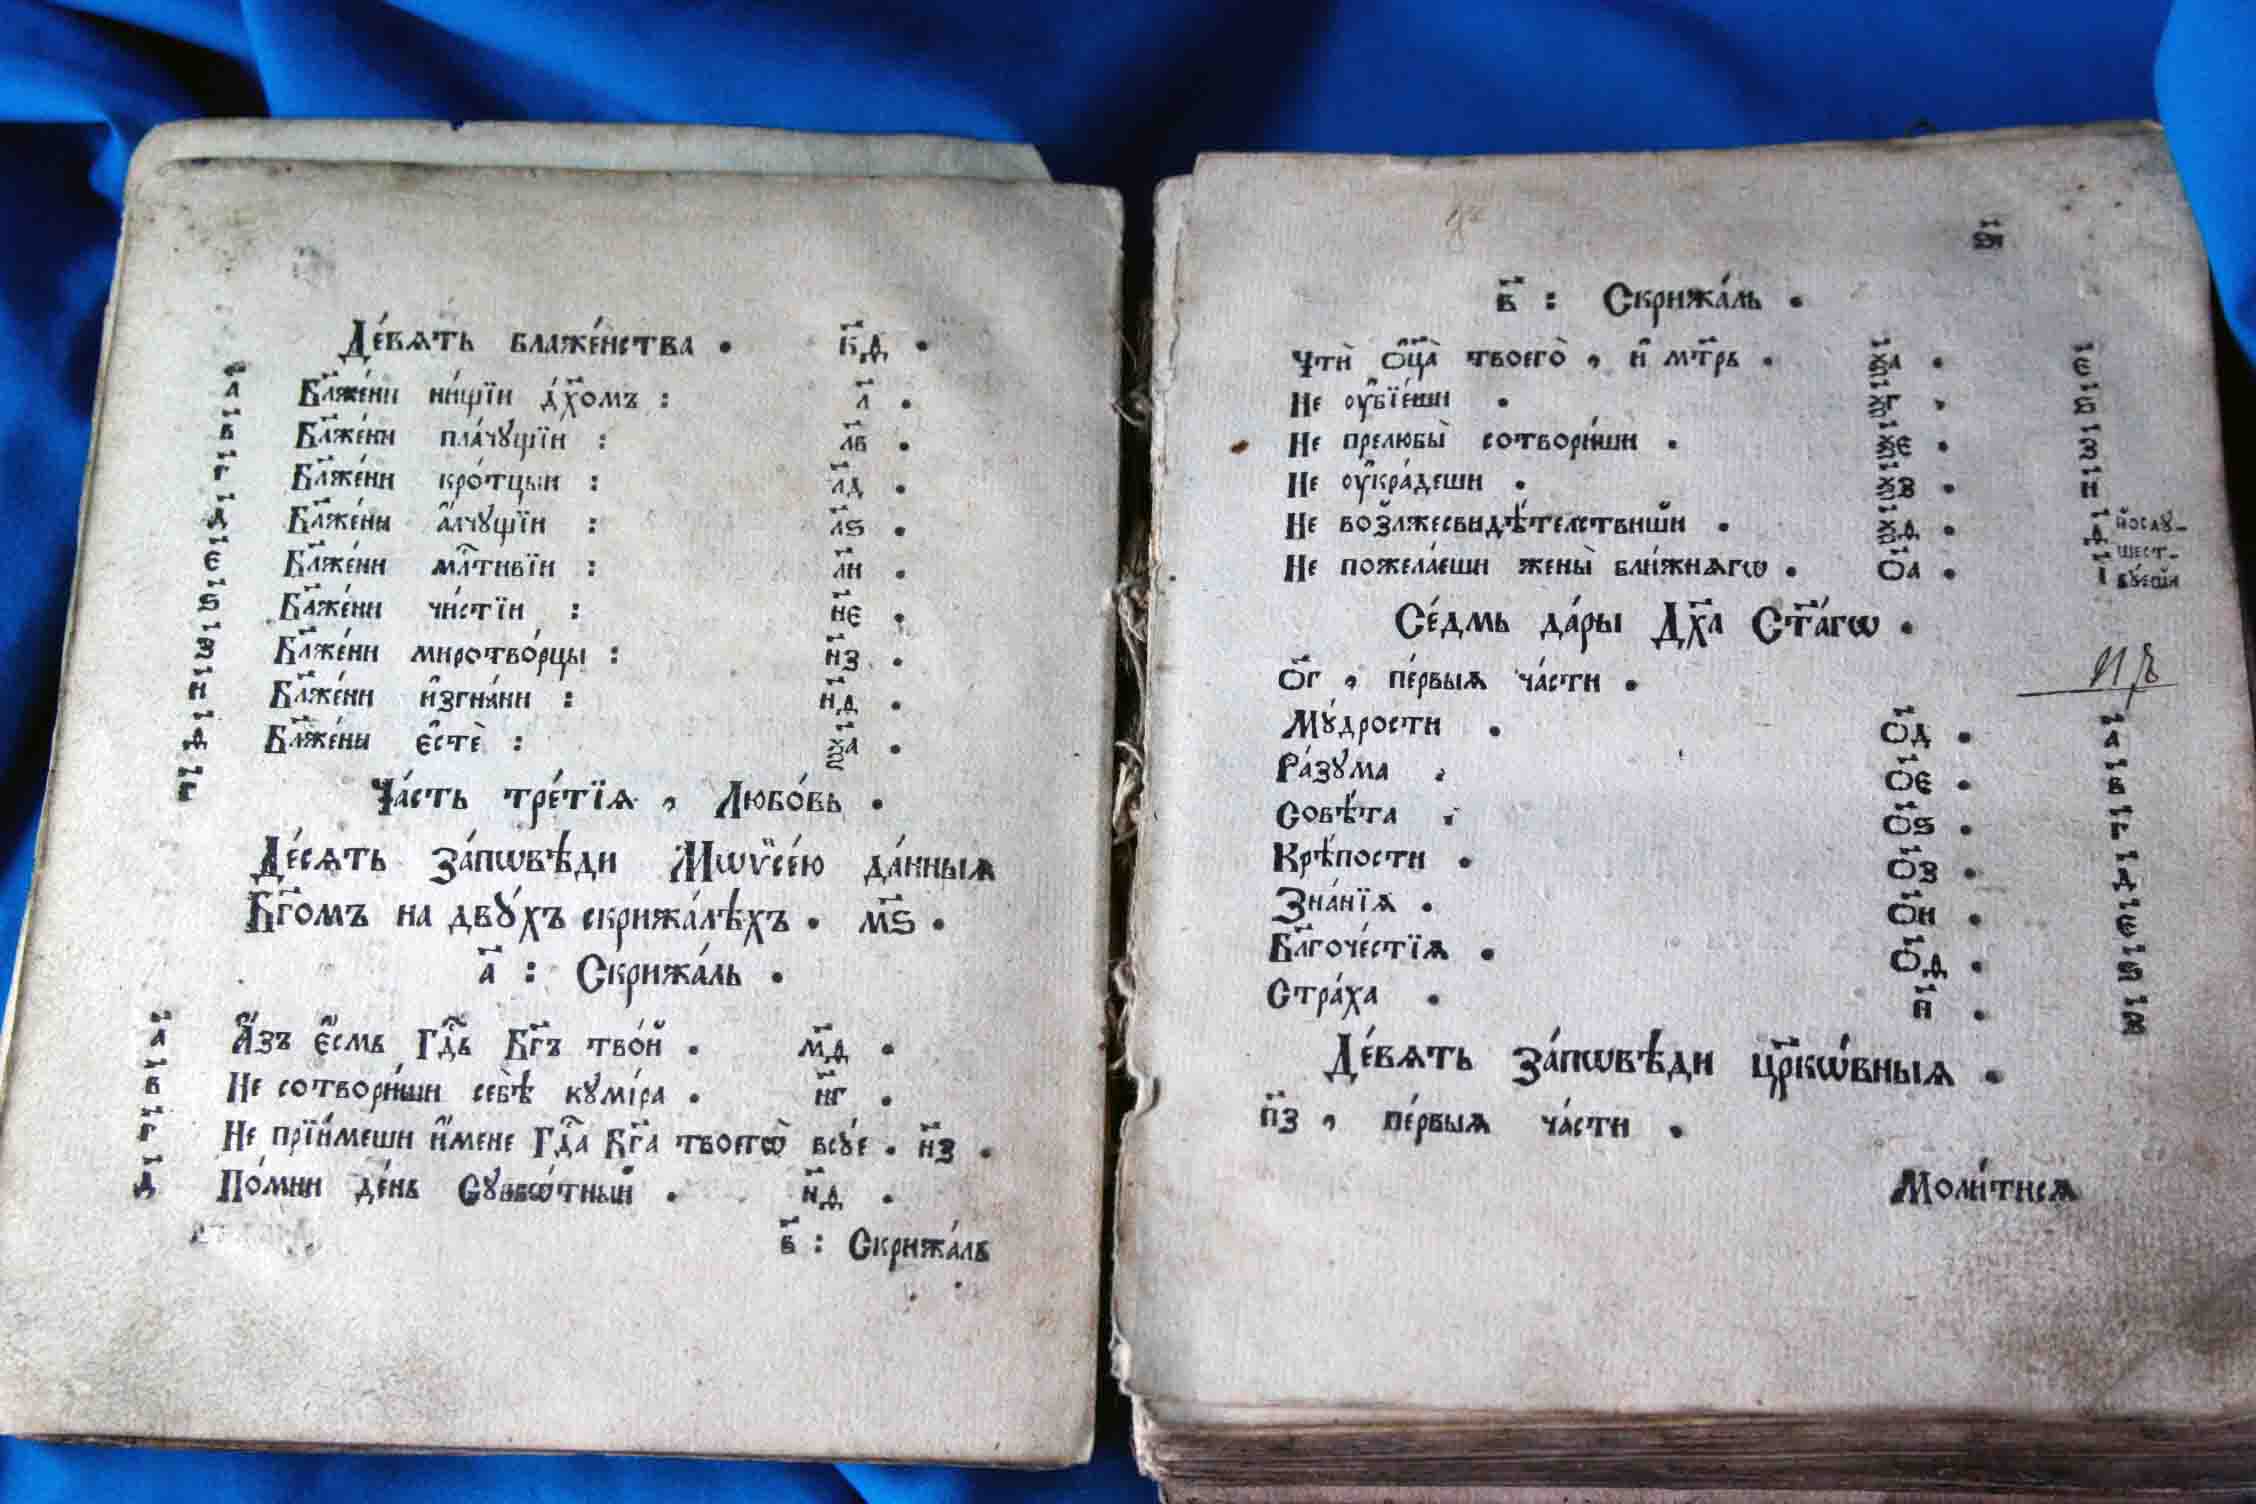 Де́вѧть блаже́нства . к҃д .
а҃ Бл҃же́ни ни́щїи дх҃омъ : л҃ .
в҃ Бл҃же́ни пла́чꙋщїи : л҃в .
г҃ Бл҃же́ни кро́тцыи : л҃д .
д҃ Бл҃же́ны а҆́лчꙋщїи : л҃ѕ .
є҃ Бл҃же́ни мл҃тивїи : л҃и .
ѕ҃ Бл҃же́ни чи́стїи : н҃є .
з҃ Бл҃же́ни миротво́рцы : н҃з .
и҃ Бл҃же́ни и҆згна́ни : н҃д .
д҃ Бл҃же́ны є҆стѐ : ѯ҃а .
г҃і Ча́сть тре́тїѧ , Любо́вь .
Де́сѧть за́пѡвѣди Мѡѷсе́ю да́нныѧ
Бг҃омъ на двꙋ́хъ скрижа́лѣхъ . м҃ѕ .
а҃ : Скрижа́ль .
а҃ А҆́зъ є҆́смь Гд҃ь Бг҃ъ тво́й . м҃д .
в҃ Не сотвори́ши себѣ̀ кꙋмі́ра . н҃г .
г҃ Не прїи́меши и҆́мене Гд҃а Бг҃а твоегѡ̀ всꙋ́е . н҃з .
д҃ По́мни де́нь Сꙋ́ввѡтный . н҃д .
в҃ : Скрижа́ль
ѕ҃і
в҃ : Скрижа́ль .
Чтѝ ѻ҆ц҃а̀ твоего̀ , и҆ мт҃рь . ѯ҃а . є҃
Не ѹ҆бїе́ши . ѯ҃г . ѕ҃
Не прелюбы̀ сотвори́ши . ѯ҃є . з҃
Не ѹ҆кра́деши . ѯ҃в . и҃
Не возлжесвидѣ́телствиши . ѯ҃д . д҃ посꙋ-
шест-
вꙋеши
Не пожела́еши жены̀ бли́жнѧгѡ . ѻ҃а . і҃
Се́дмь да́ры Дх҃а Ст҃а́гѡ .
ѻ҃г , пе́рвыѧ ча́сти .
Мꙋ́дрости . ѻ҃д . а҃
Ра́зꙋма . ѻ҃є . в҃
Совѣ́та . ѻ҃ѕ . г҃
Крѣ́пости . ѻ҃з . д҃
Зна́нїѧ . ѻ҃и . є҃
Бл҃гоче́стїѧ . ѻ҃д . ѕ҃
Стра́ха . п҃ . з҃
Де́вѧть за́пѡвѣди цр҃кѡ́вныѧ .
п҃з , пе́рвыѧ ча́сти .
Моли́тисѧ